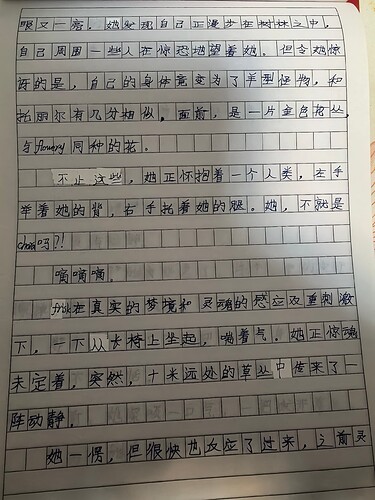 眼又一旁，她发现自己正漫步在树林之中，
自己周围一些人在惊恐地望着她。但令她惊
讶的是，自己的身体竟变为了羊型怪物，和
托丽尔有几分相似。面前，是一片金色花丛，
与flowery同种的花。
不止这些，她正怀抱着一个人类，左手
举着她的背，右手托着她的腿。她，不就是
chara吗?!
嘀嘀嘀。
frisk在真实的梦境和灵魂的感应双重刺激
下，一下从长椅上坐起，喘着气。她正惊魂
未定着，突然，十米远处的草丛中传来了一
阵动静。
她一愣，但很快也反应了过来，之前灵